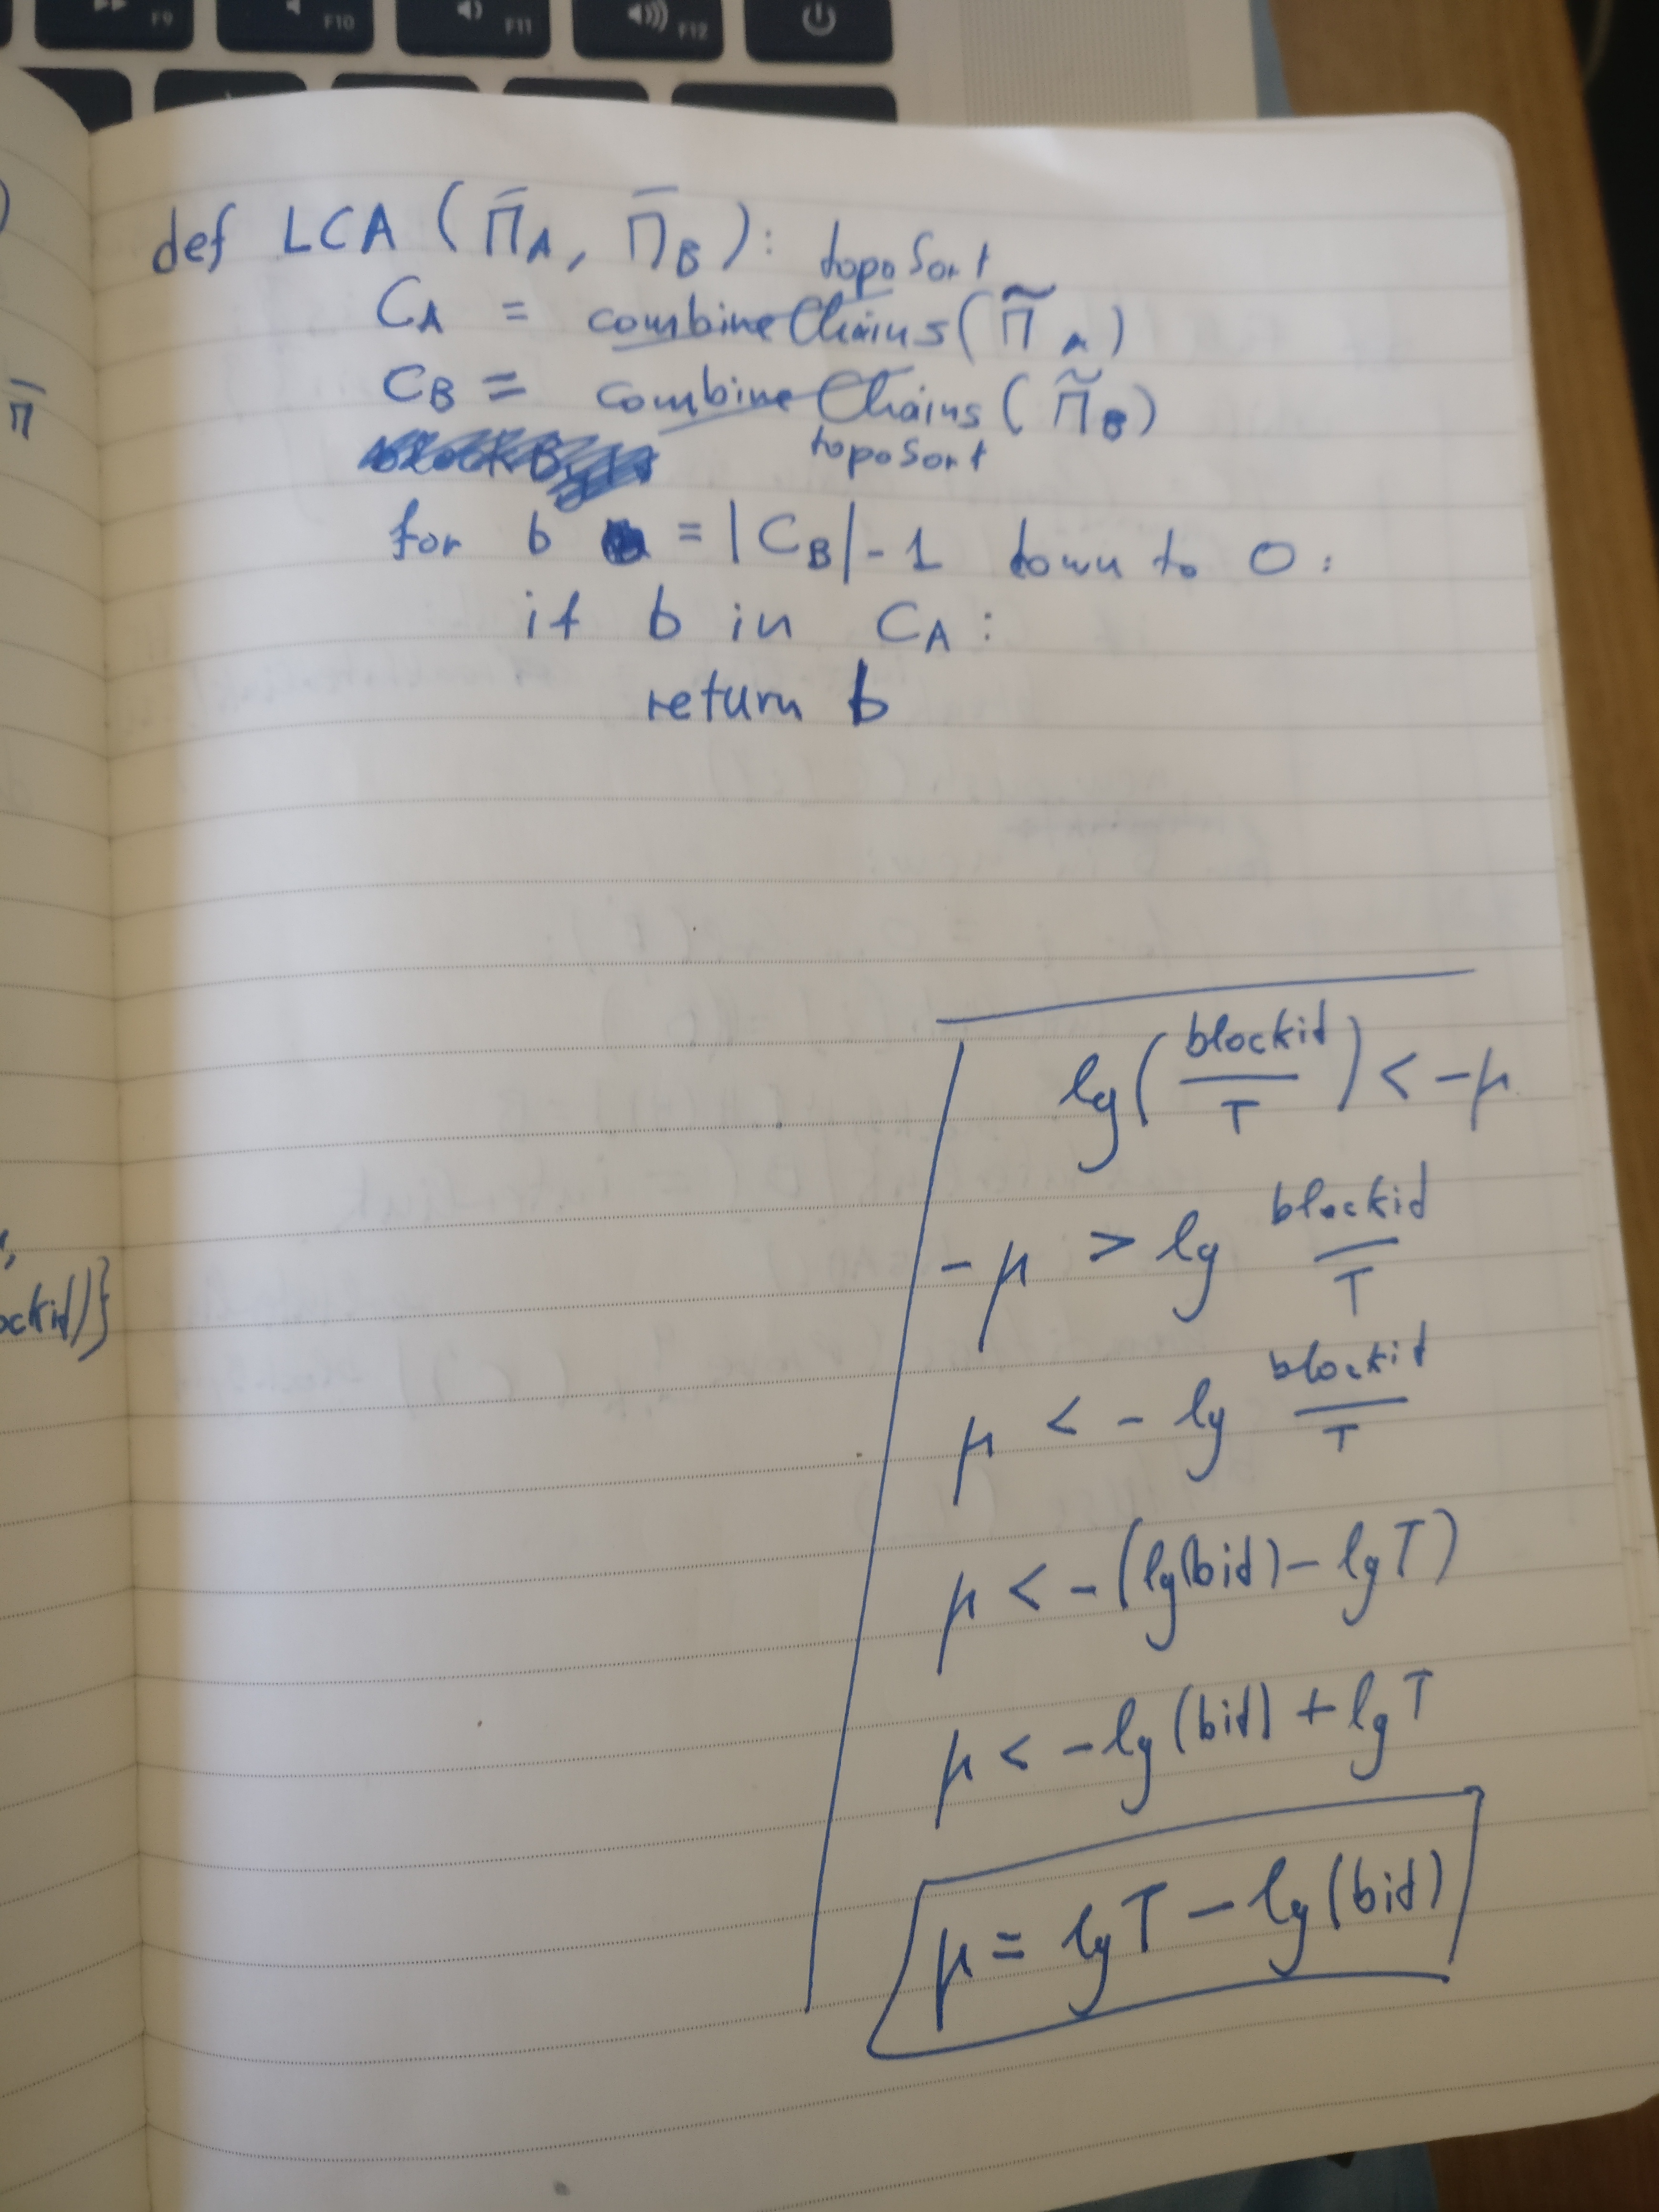 F9 F10 F11 F12
def LCA (Π̄A, Π̄B):
topoSort
CA = combineChains(Π̃A)
CB = combineChains(Π̃B)
topoSort
for b = |CB| - 1 down to 0:
if b in CA:
return b
Π̄
ockid)}
lg(blockid/T) < -μ
-μ > lg blockid/T
μ < - lg blockid/T
μ < -(lg(bid) - lgT)
μ < -lg(bid) + lgT
μ = lgT - lg(bid)